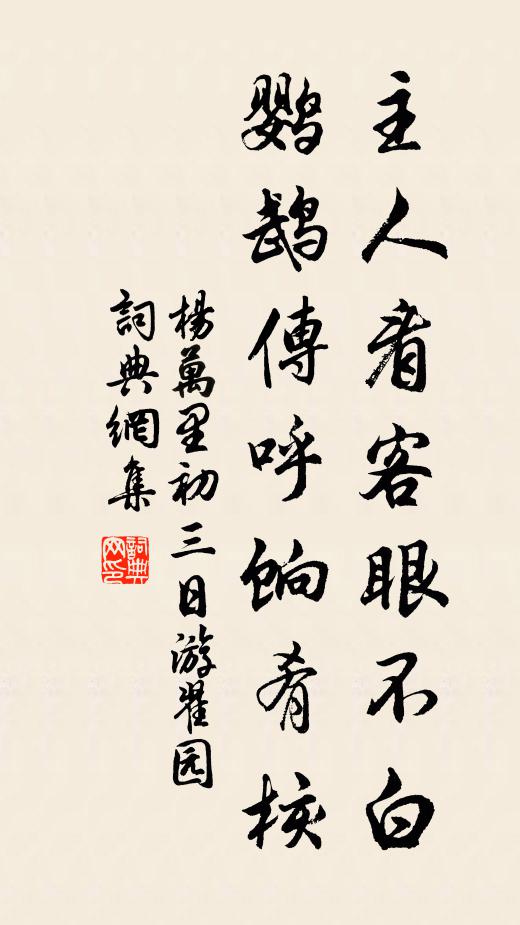 主人看客眼不白
鹦鹉傳呼餉肴核
楊萬里初三日游翟园
詞典網集
詞典网印